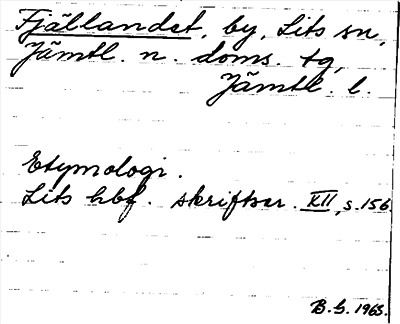 Fjällandet, by, Lits sn,
Jämtl. n. doms. tg,
Jämtl. l.
Etymologi.
Lits hbf. skriftser. XII, s. 156
B.G. 1963.